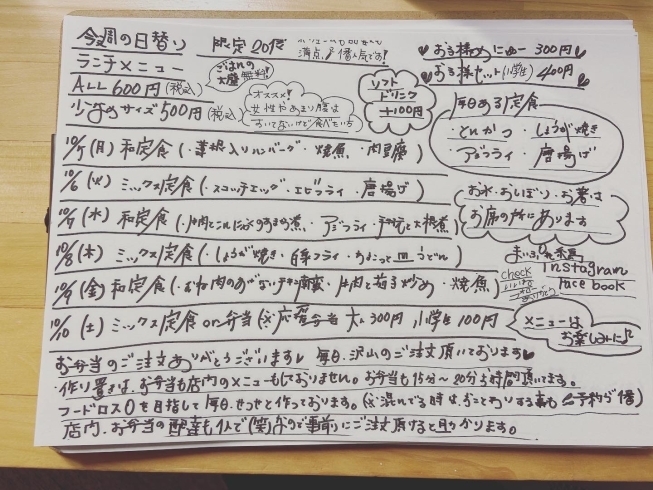 今週の日替り
ランチメニュー
限定20食
ALL 600円(税込)
ごはんの大盛無料!
少なめサイズ 500円(税込)
オススメ!
女性やあまり腹は
すいてないけど食べたい方
ソフト
ドリンク
+100円
お子様めにゅー 300円
お子様セット(小学生) 400円
毎日ある定食
・とんかつ ・しょうが焼き
・アジフライ ・唐揚げ
10/5(月) 和定食(・根菜入りハンバーグ ・焼魚 ・肉豆腐)
10/6(火) ミックス定食(・スコッチエッグ ・エビフライ ・唐揚げ)
10/7(水) 和定食(・牛肉とこんにゃくのうま煮 ・アジフライ ・手羽元と大根煮)
10/8(木) ミックス定食(・しょうが焼き ・白身フライ ・ちょこっとmうどん)
10/9(金) 和定食(・むね肉のあげないチキン南蛮 ・牛肉と茄子炒め ・焼魚)
10/10(土) ミックス定食or弁当(※応援弁当 大人300円 小学生100円)
お水・おしぼり・お箸は
お席の所にあります
check
Instagram
facebook
メニューは
お楽しみに♪
お弁当のご注文ありがとうございます♥ 毎日、沢山のご注文頂いております♥
・作り置きは、お弁当も店内のメニューもしておりません。お弁当も15分〜20分お時間頂いてます。
フードロス0を目指して毎日、せっせと作っております。(※混んでる時は、おことわりする事も 予約が1番)
店内、お弁当の配達も1人で(笑) なので事前にご注文頂けると助かります。